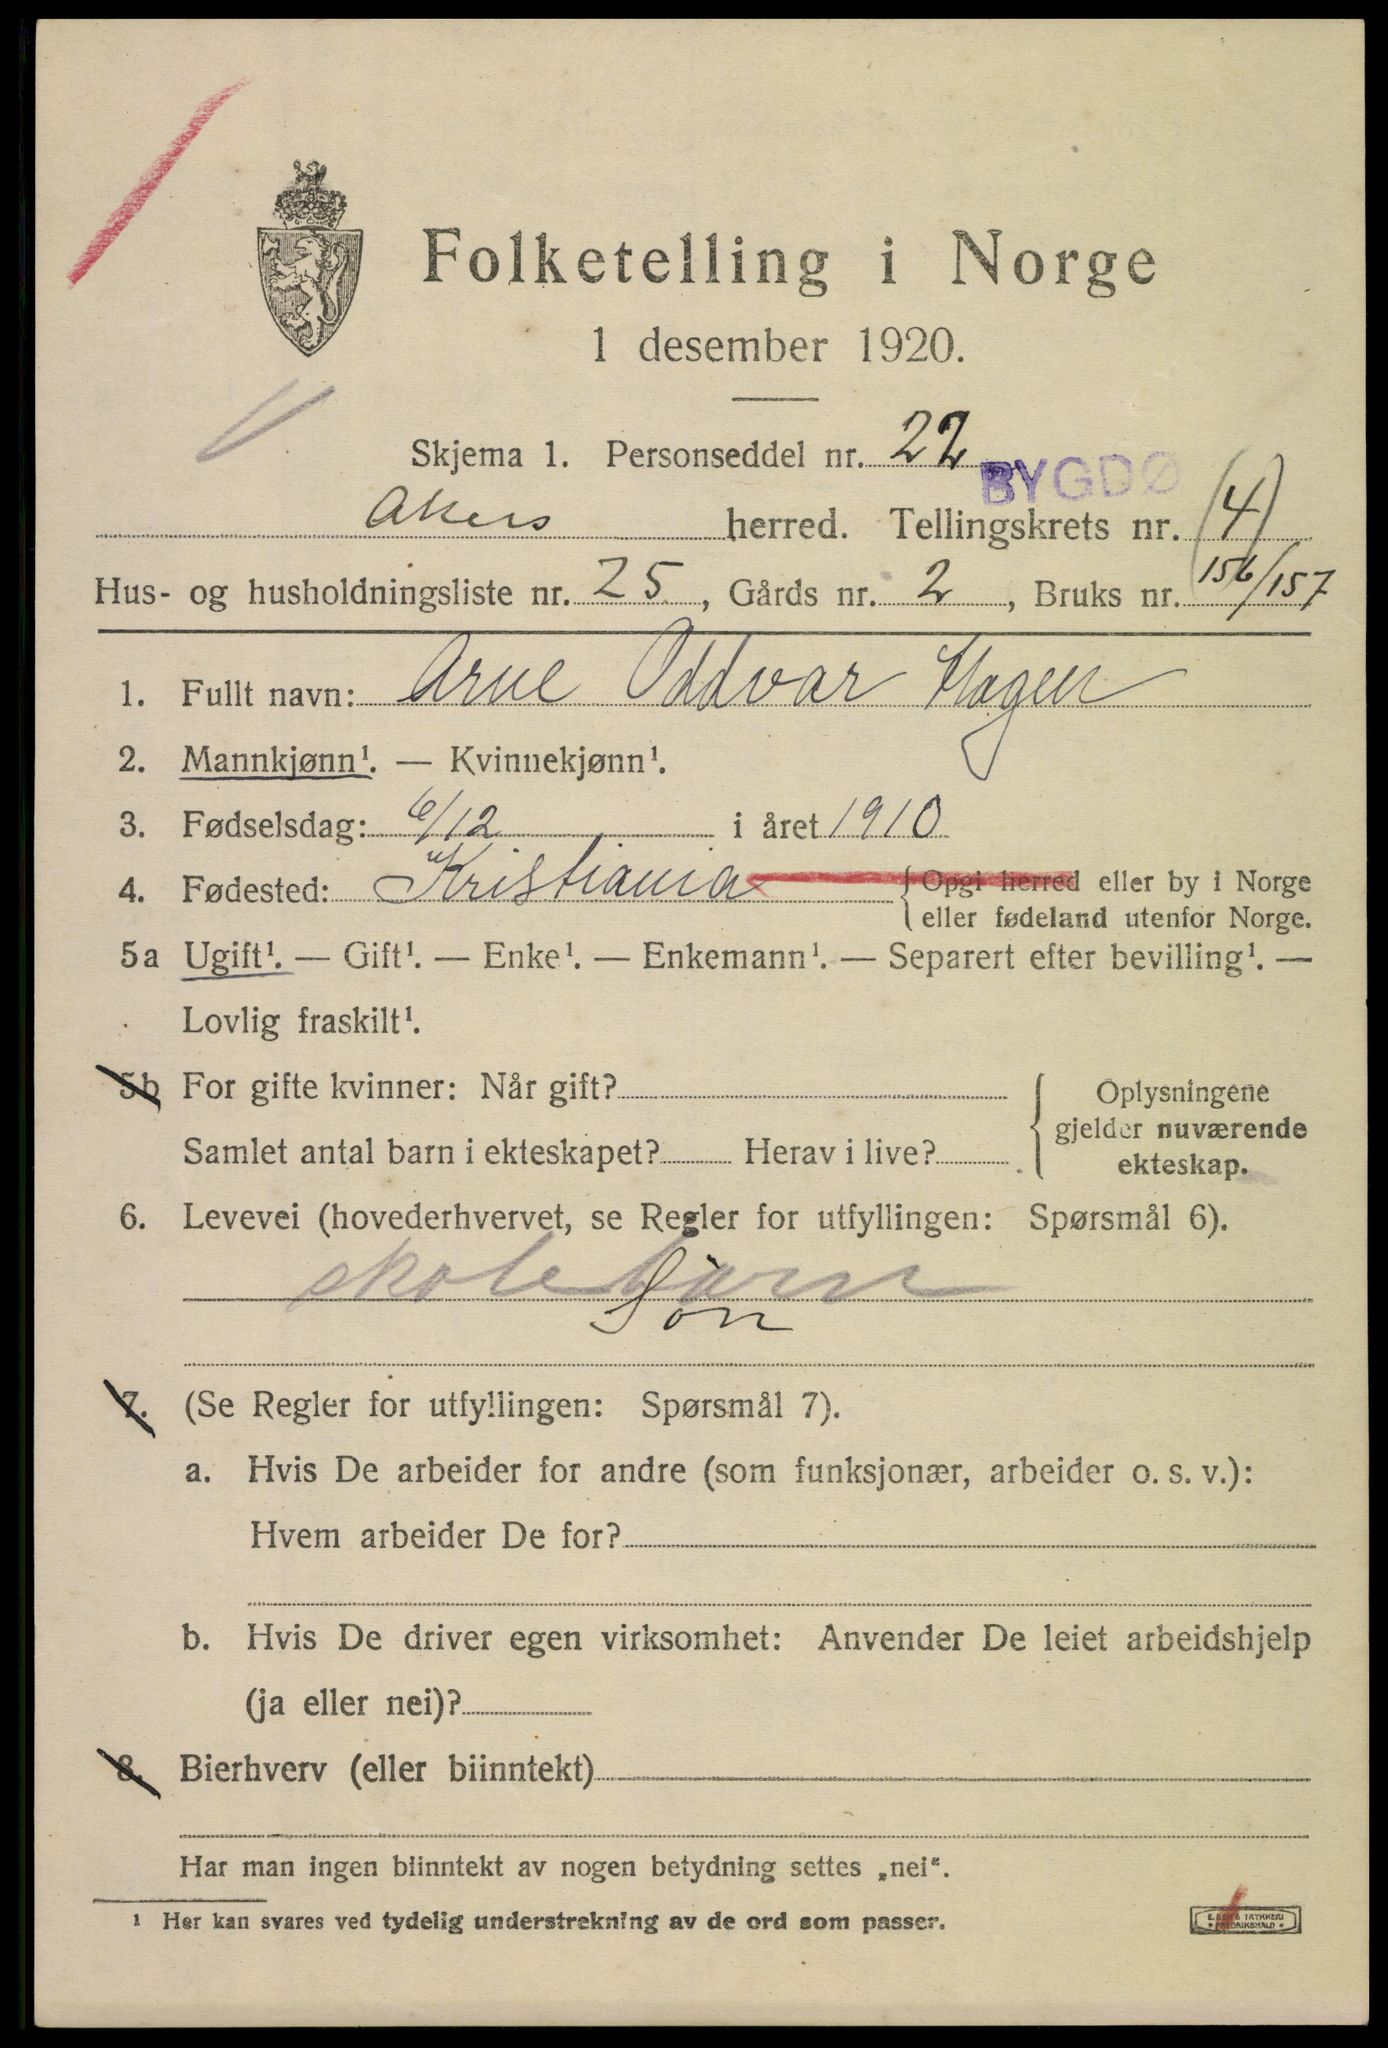 Folketelling i Norge
1 desember 1920.
Skjema 1. Personseddel nr. 22
BYGDØ
Akers herred. Tellingskrets nr. (4)
Hus- og husholdningsliste nr. 25, Gårds nr. 2, Bruks nr. 156/157
1. Fullt navn: Arne Oddvar Hagen
2. Mannkjønn¹. — Kvinnekjønn¹.
3. Fødselsdag: 6/12 i året 1910
4. Fødested: Kristiania {Opgi herred eller by i Norge
eller fødeland utenfor Norge.
5a Ugift¹. — Gift¹. — Enke¹. — Enkemann¹. — Separert efter bevilling¹. —
Lovlig fraskilt¹.
5b For gifte kvinner: Når gift?
Samlet antal barn i ekteskapet? Herav i live?
{Oplysningene
gjelder nuværende
ekteskap.
6. Levevei (hovederhvervet, se Regler for utfyllingen: Spørsmål 6).
skolebarn
Søn
7. (Se Regler for utfyllingen: Spørsmål 7).
a. Hvis De arbeider for andre (som funksjonær, arbeider o. s. v.):
Hvem arbeider De for?
b. Hvis De driver egen virksomhet: Anvender De leiet arbeidshjelp
(ja eller nei)?
8. Bierhverv (eller biinntekt)
Har man ingen biinntekt av nogen betydning settes „nei“.
¹ Her kan svares ved tydelig understrekning av de ord som passer.
TRYKKERI
FREDRIKSHALD